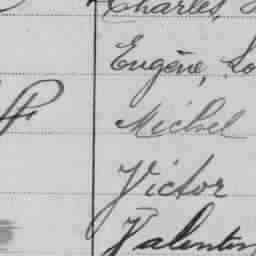 Charles,
Eugène,
Michel
Victor
Valentin